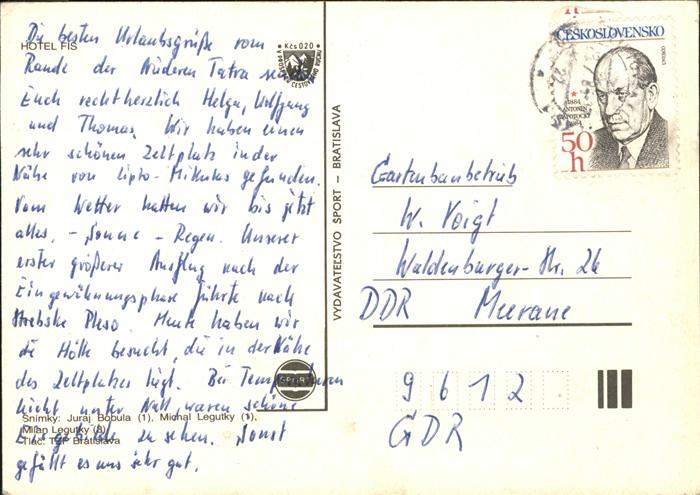 HOTEL FIS
Die besten Urlaubsgrüße vom
Rande der Niederen Tatra senden
Euch recht herzlich Helga, Wolfgang
und Thomas. Wir haben einen
sehr schönen Zeltplatz in der
Nähe von Lipto-Mikulas gefunden.
Vom Wetter hatten wir bis jetzt
alles, - Sonne - Regen. Unserer
erster größerer Ausflug nach der
Eingewöhnungsphase führte nach
Strebske Pleso. Heute haben wir
die Höhle besucht, die in der Nähe
des Zeltplatzes liegt. Bei Temperaturen
nicht unter Null waren schöne
zu sehen. Sonst
gefällt es uns sehr gut.
Snímky: Juraj Bobula (1), Michal Legutky (1),
Milan Legutky (3)
Tlač: TSP Bratislava
Kčs 0,20
SPORT
VYDAVATEĽSTVO ŠPORT – BRATISLAVA
ČESKOSLOVENSKO
1884
ANTONÍN
ZÁPOTOCKÝ
1984
50
h
Gartenbaubetrieb
W. Voigt
Waldenburger-Str. 26
DDR Meerane
9 6 1 2
GDR